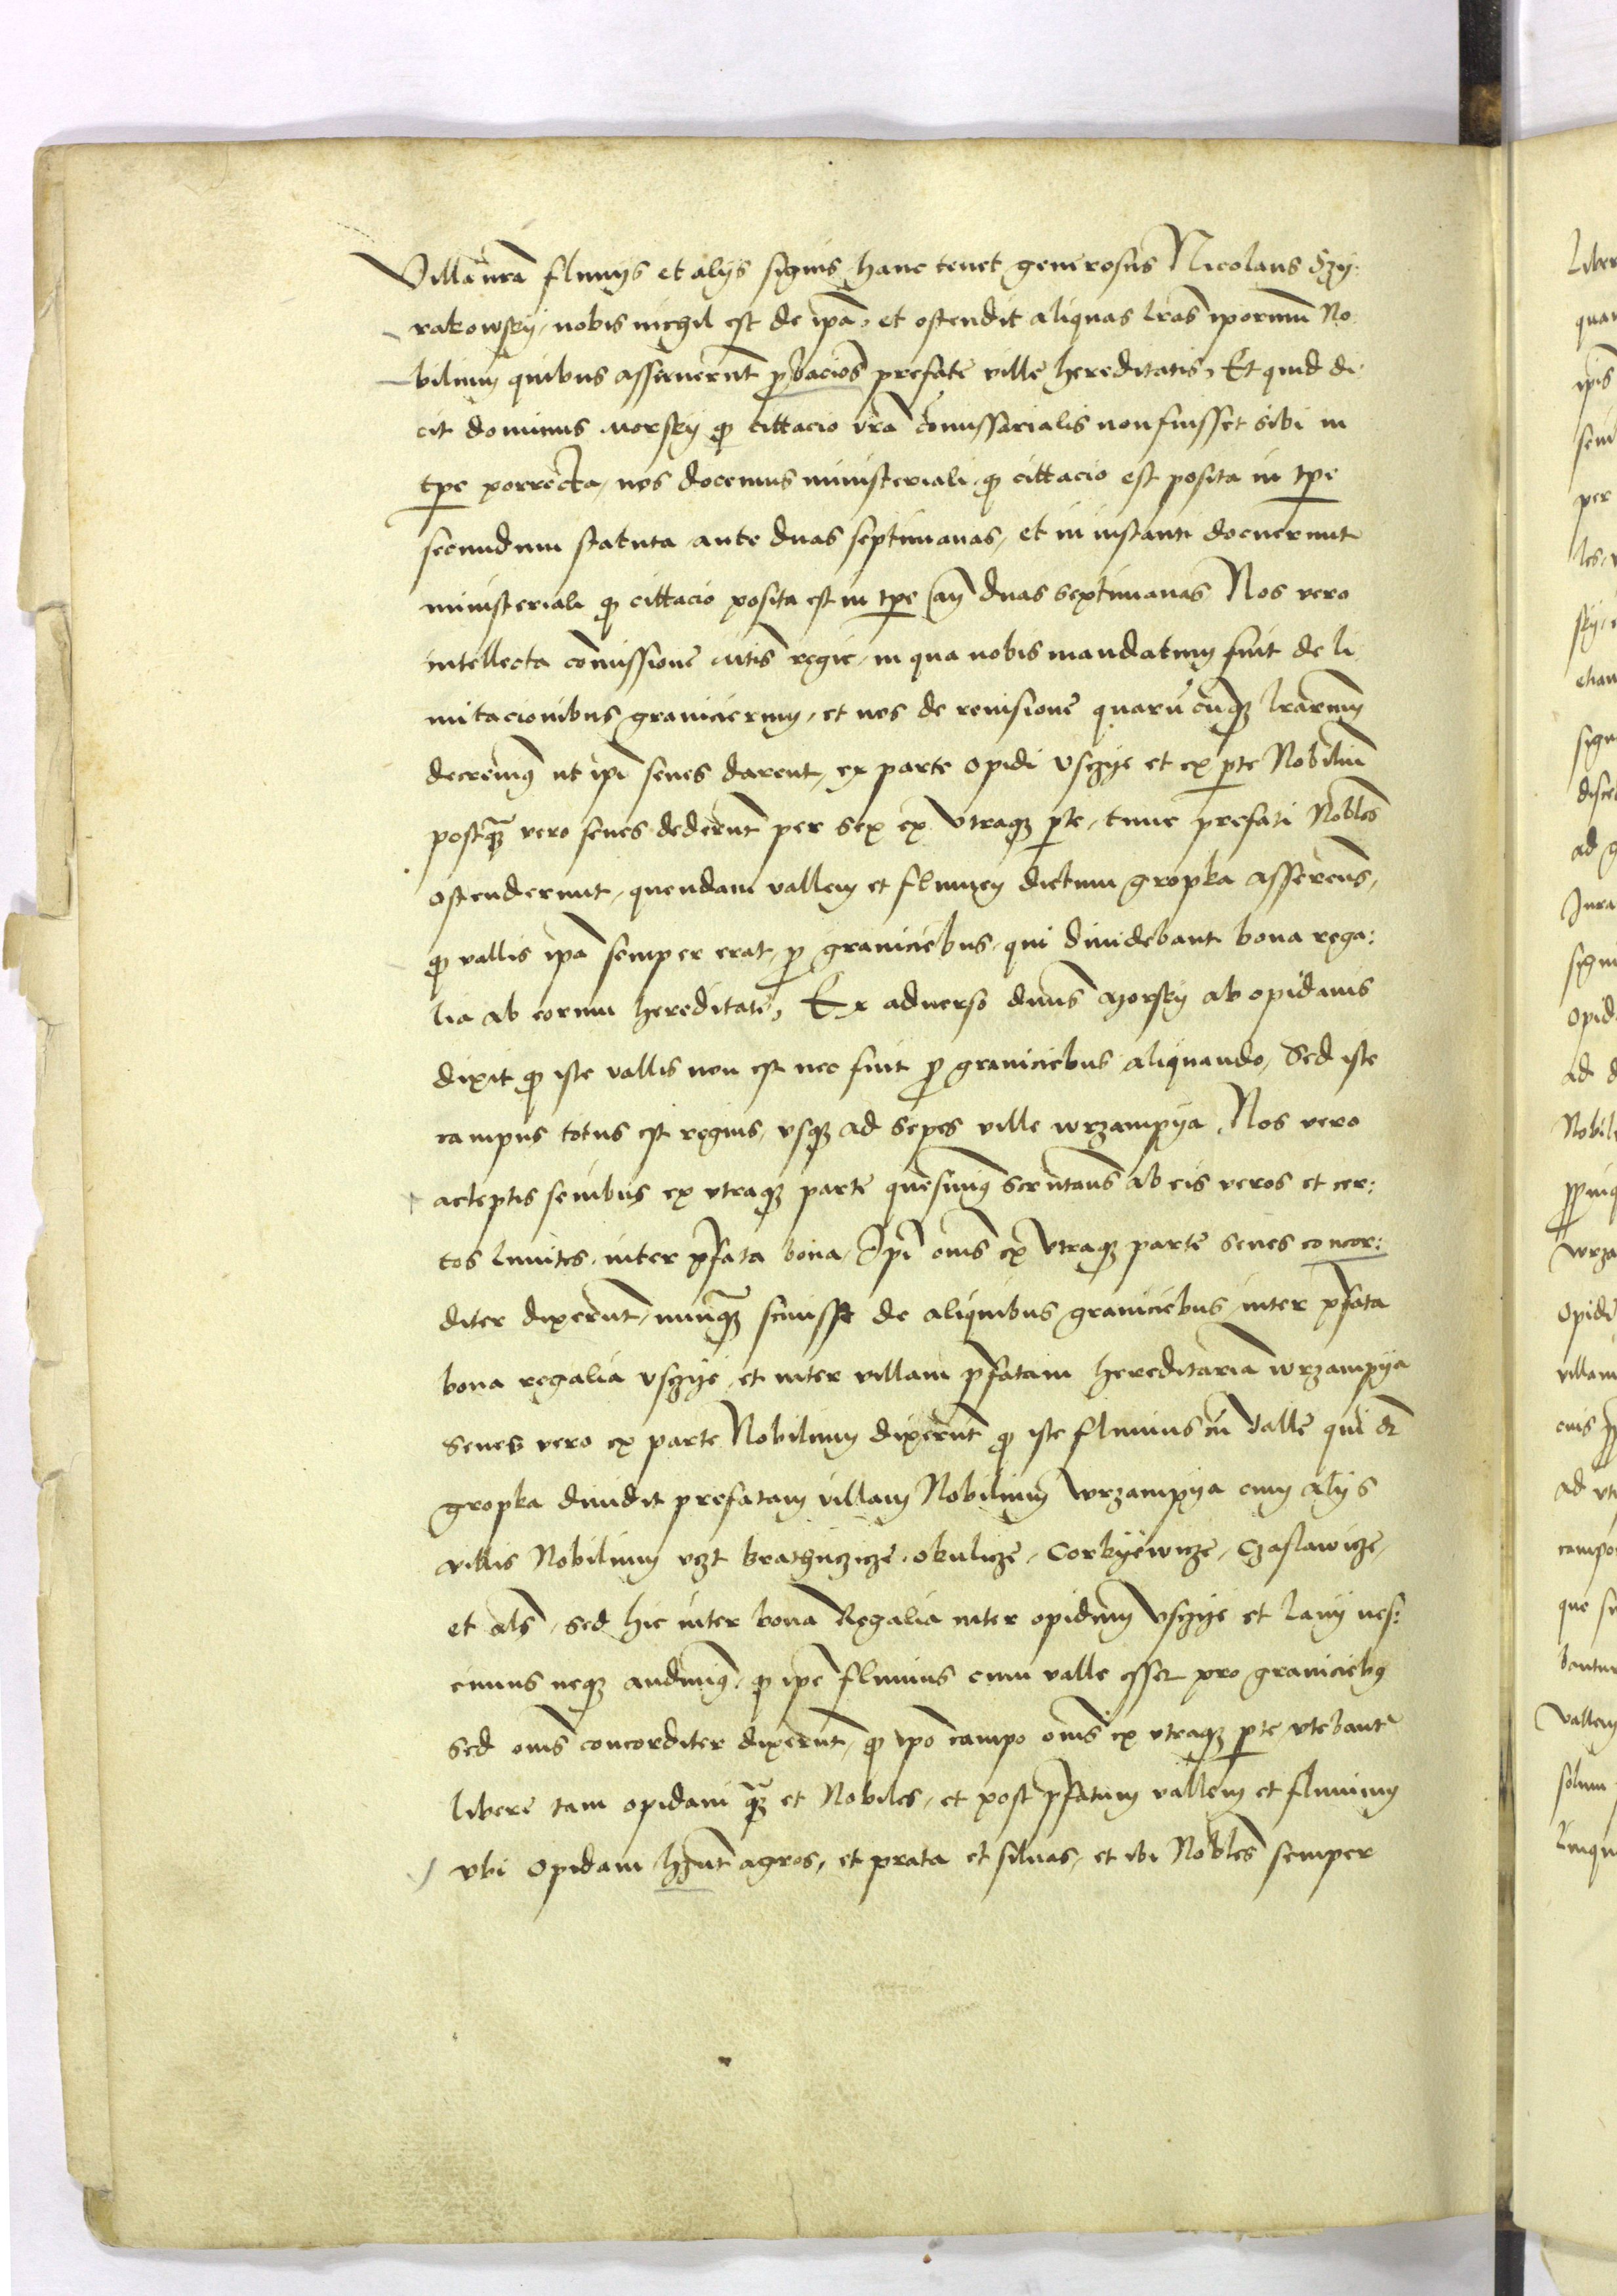 Villa nrā fluuijs et alijs signis hanc tenet generosus Nicolaus Szy:
rakowsky, nobis nichil est de ipā, et ostendit aliquas lrās iporum No
bilium quibus asseruerūt p̱bacios prefate ville hereditatis, Et quid di:
cit dominus Morsky ꝙ cittacio vrā comissarialis non fuisset sibi in
tpe porrecta, nos docemus ministeriali ꝙ cittacio est posita in tpe
secundum statuta ante duas septimanas, et in instanti docuerunt
ministeriali ꝙ cittacio posita est in tpe añ duas septimanas Nos vero
intellecta comissione Mtis regie, in qua nobis mandatum fuit de li
mitacionibus granicierum, et nos de reuisione quarūcūqꝫ lrarum
decreuimꝰ ut ipi senes darent, ex parte opidi vsczye et ex pte Nobiliū
postqꝫ vero senes dederūt per sex ex vtraqꝫ pte, tunc prefati Nobles
ostenderunt, quendam vallem et flumen dictum gropka asserens,
ꝙ vallis ipa semper erat p̱ graniciebus, qui diuidebant bona rega:
lia ab eorum hereditate, Ex aduerso dnus Morsky ab opidanis
dixit ꝙ iste vallis non est nec fuit p̱ graniciebus aliquando, Sed iste
campus totus est regius, vsqꝫ ad sepes ville wrzampya, Nos vero
acceptis senibus ex vtraqꝫ parte quesiuimꝰ scrutans ab eis veros et cer:
tos limites, inter pfata bona, Ipi oms ex vtraqꝫ parte senes concor:
diter dixerūt, nunqꝫ scuisse de aliquibus graniciebus inter pfata
bona regalia vsczye, et inter villam pfatam hereditaria wrzampya
Senes vero ex parte Nobilium dixerūt ꝙ iste fluuius cū valle qui dr
gropka diuidit prefatam villam Nobilium wrzampya cum alijs
villis Nobilium vzt brathuczicze, okulicze, Corkyewicze, Czaslawicze,
et als, sed hic inter bona Regalia inter opidum vsczye et lany nes:
cimus neqꝫ audiuimꝰ, ꝙ ipe fluuius cum valle esset pro graniciebꝰ
Sed oms concorditer dixerūt, ꝙ ipo campo oms ex vtraqꝫ pte vtebant
libere tam opidani qꝫ et Nobiles, et post pfatum vallem et fluuium
vbi opidani hñt agros, et prata et siluas, et ibi Nobles semper